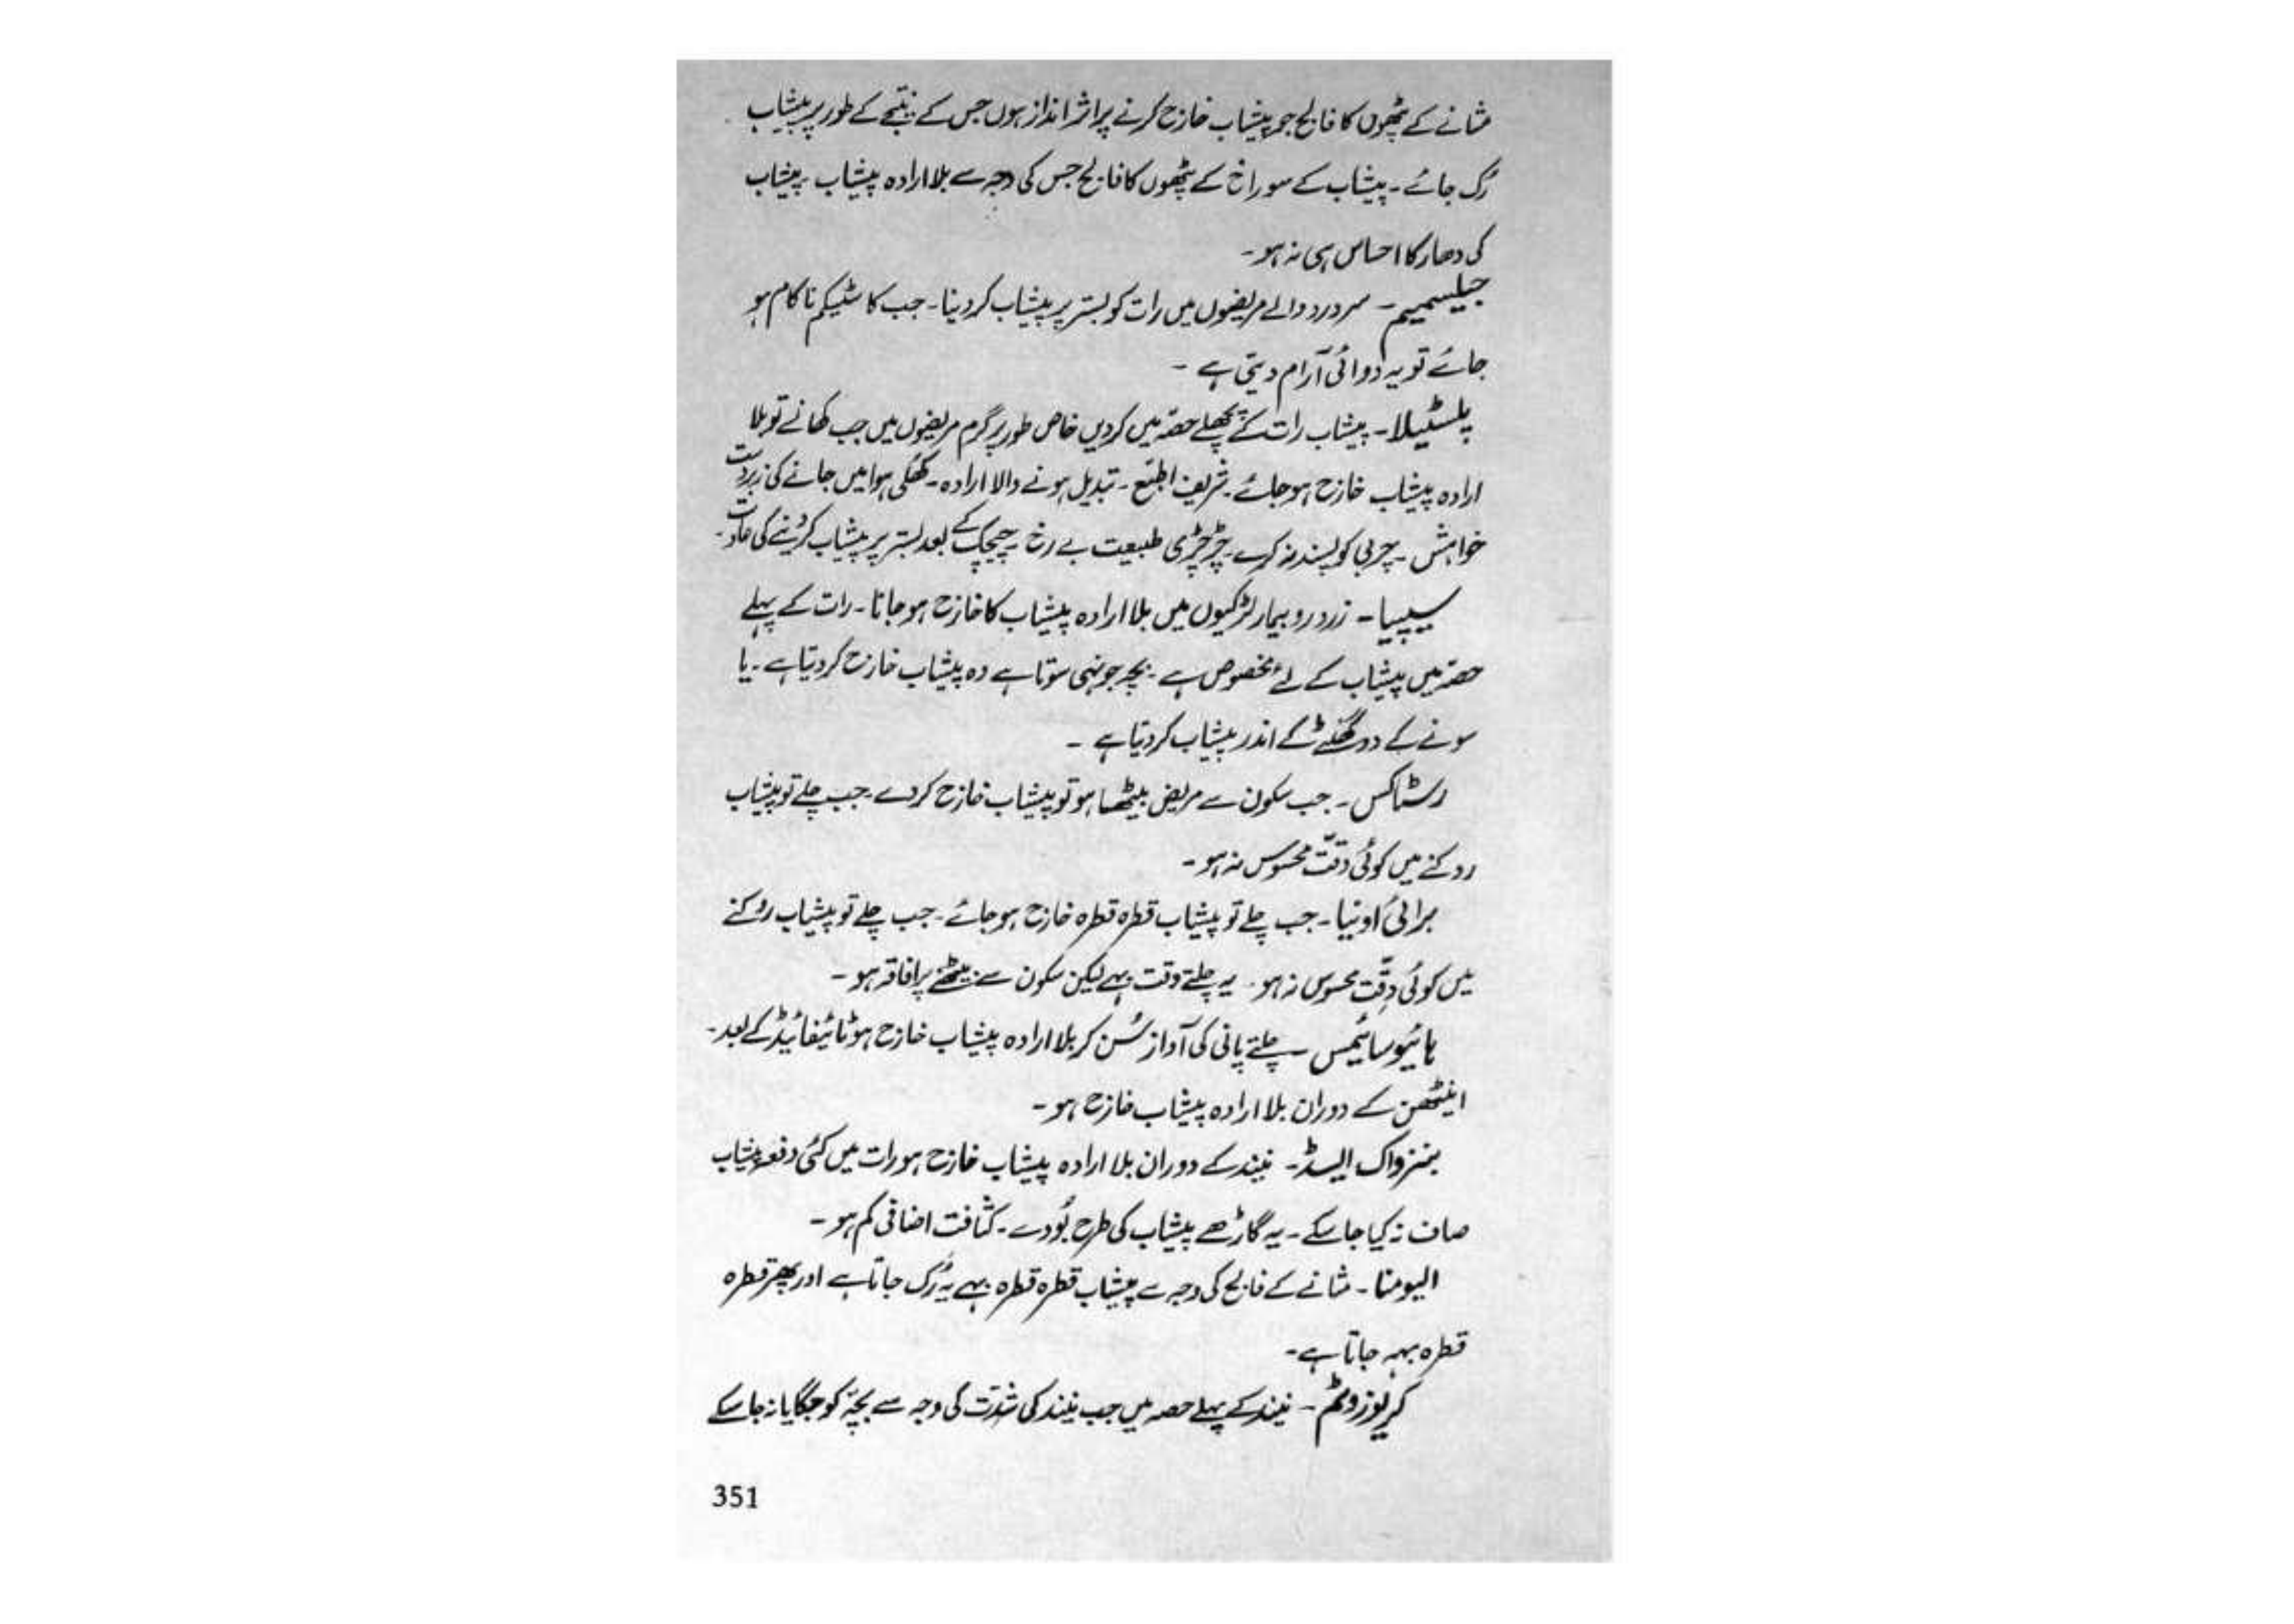 مثانے کے پٹھوں کا فالج جو پیشاب خارج کرنے پر اثر انداز ہوں جس کے نتیجے کے طور پر پیشاب
رُک جائے۔ پیشاب کے سوراخ کے پٹھوں کا فالج جس کی وجہ سے بلا ارادہ پیشاب۔ پیشاب
کی دھار کا احساس ہی نہ ہو۔
جیلسمیم۔ سردرد والے مریضوں میں رات کو بستر پر پیشاب کر دینا۔ جب کاسٹیکم ناکام ہو
جائے تو یہ دوائی آرام دیتی ہے۔
پلسٹیلا۔ پیشاب رات کے پچھلے حصّہ میں کر دیں خاص طور پر گرم مریضوں میں جب کھانے تو بلا
ارادہ پیشاب خارج ہو جائے۔ شریف الطبع۔ تبدیل ہونے والا ارادہ۔ کھُلی ہوا میں جانے کی زبردست
خواہش۔ چربی کو پسند نہ کرے۔ چڑچڑی طبیعت بے رخ۔ چیچک کے بعد بستر پر پیشاب کر دینے کی عادت۔
سیپیا۔ زرد رو بیمار لڑکیوں میں بلا ارادہ پیشاب کا خارج ہو جانا۔ رات کے پہلے
حصّہ میں پیشاب کے لئے مخصوص ہے۔ بچہ جونہی سوتا ہے وہ پیشاب خارج کر دیتا ہے۔ یا
سونے کے دو گھنٹے کے اندر پیشاب کر دیتا ہے۔
رسٹاکس۔ جب سکون سے مریض بیٹھا ہو تو پیشاب خارج کر دے۔ جب چلے تو پیشاب
روکنے میں کوئی دقّت محسوس نہ ہو۔
برائی اونیا۔ جب چلے تو پیشاب قطرہ قطرہ خارج ہو جائے۔ جب چلے تو پیشاب روکنے
میں کوئی دِقّت محسوس نہ ہو۔ یہ چلتے وقت بہے لیکن سکون سے بیٹھنے پر افاقہ ہو۔
ہائیوسائیمس۔ چلتے پانی کی آواز سُن کر بلا ارادہ پیشاب خارج ہو ٹائیفائیڈ کے بعد۔
اینٹھن کے دوران بلا ارادہ پیشاب خارج ہو۔
بنزواک ایسڈ۔ نیند کے دوران بلا ارادہ پیشاب خارج ہو رات میں کئی دفعہ پیشاب
صاف نہ کیا جا سکے۔ یہ گاڑھے پیشاب کی طرح بُو دے۔ کثافت اضافی کم ہو۔
الیومنا۔ مثانے کے فالج کی وجہ سے پیشاب قطرہ قطرہ بہے یہ رُک جاتا ہے اور پھر قطرہ
قطرہ بہہ جاتا ہے۔
کریوزوٹم۔ نیند کے پہلے حصہ میں جب نیند کی شدّت کی وجہ سے بچّہ کو جگایا نہ جا سکے
351